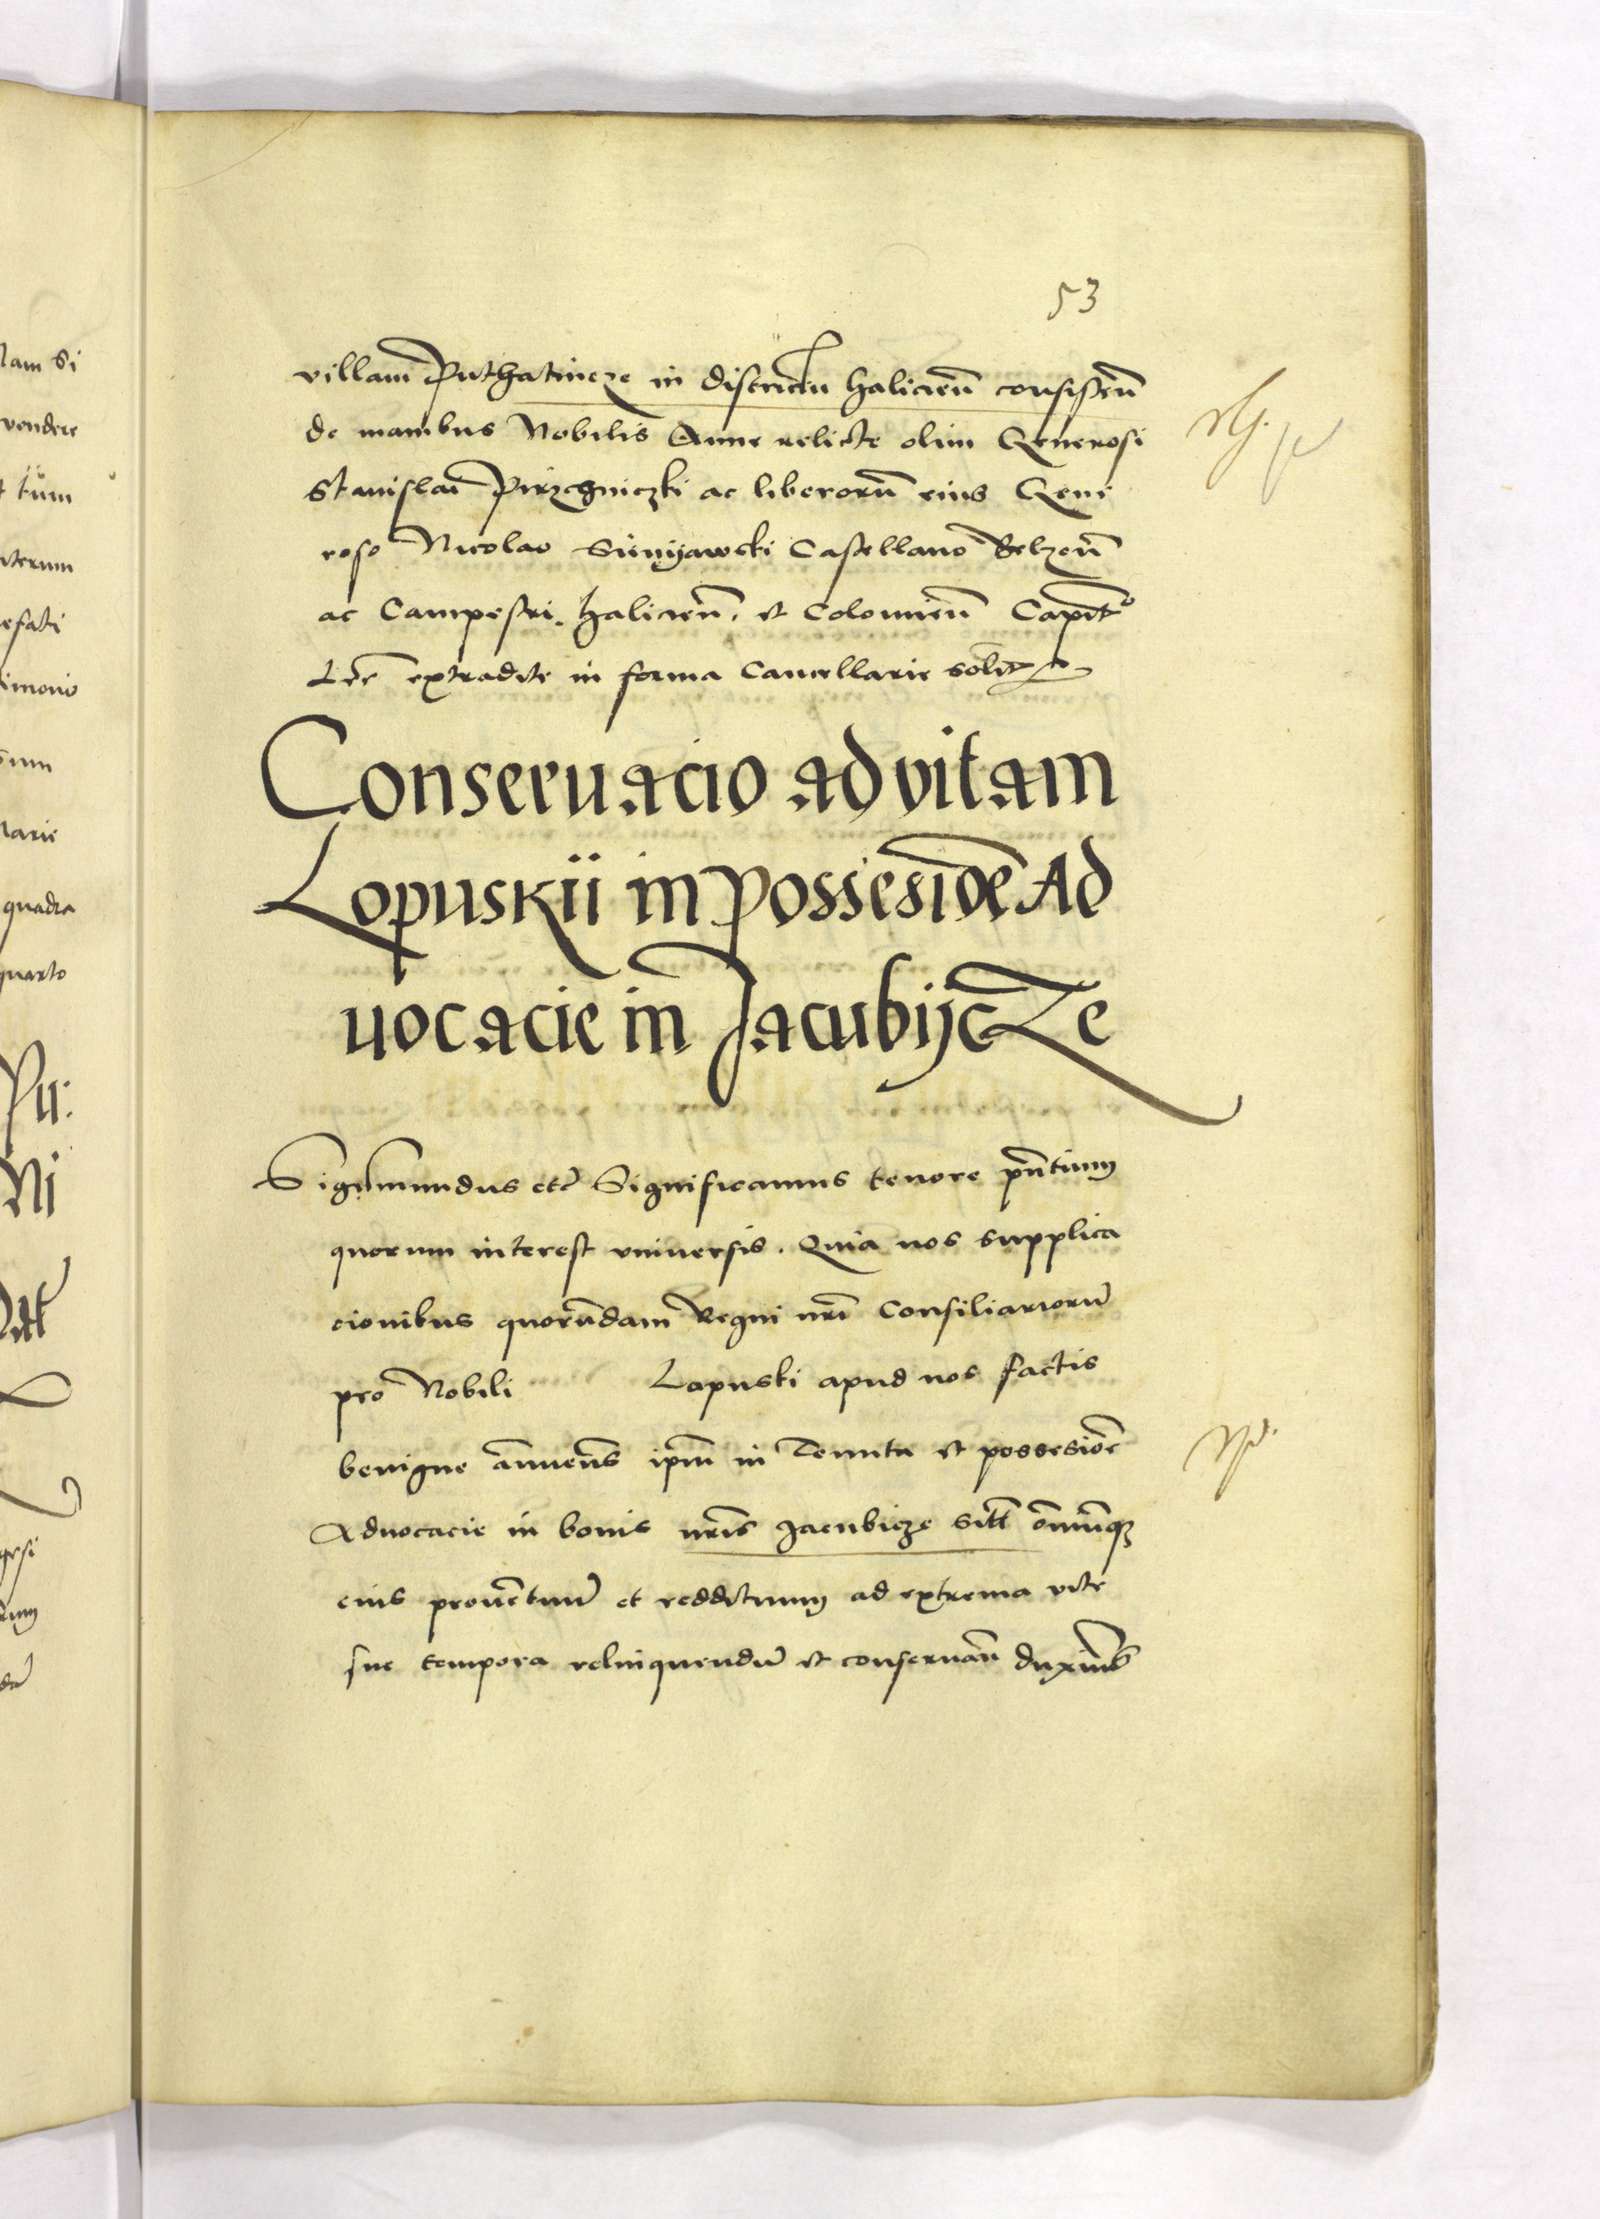 53
villam Puthatineze in districtu halicieñ consisteñ
de manibus Nobilis Anne relicte olim Generosi
Stanislai ac liberorũ eius Gene
roso Nicolao Sienyawski Castellano Belzeñ
ac Campestri halicieñ. et Colomieñ Capit̃
Lr̃e extradite in forma Cancellarie solit̃
Conseruacio ad vitam
Lopuskii in possesiõe Ad
uocacie in Jacubijcze
Sigismundus etc̃ Significamus tenore pñtium
quorum interest vniuersis. Quia nos supplica
cionibus quorũdam Regni nrĩ Consiliariorũ
pro Nobili Lapuski apud nos factis
benigne ãnuens̃ ipm̃ in Tenuta et possesiõe
Aduocacie in bonis nrĩs Jacubicze sitt̃ õmniũqz
eius prouẽtuũ et reddituum ad extrema vite
sue tempora relinquendũ et conseruañ duximus̃
lam Si
vendere
tum
iterum
efati
imonio
sum
larie
quadra
quarto